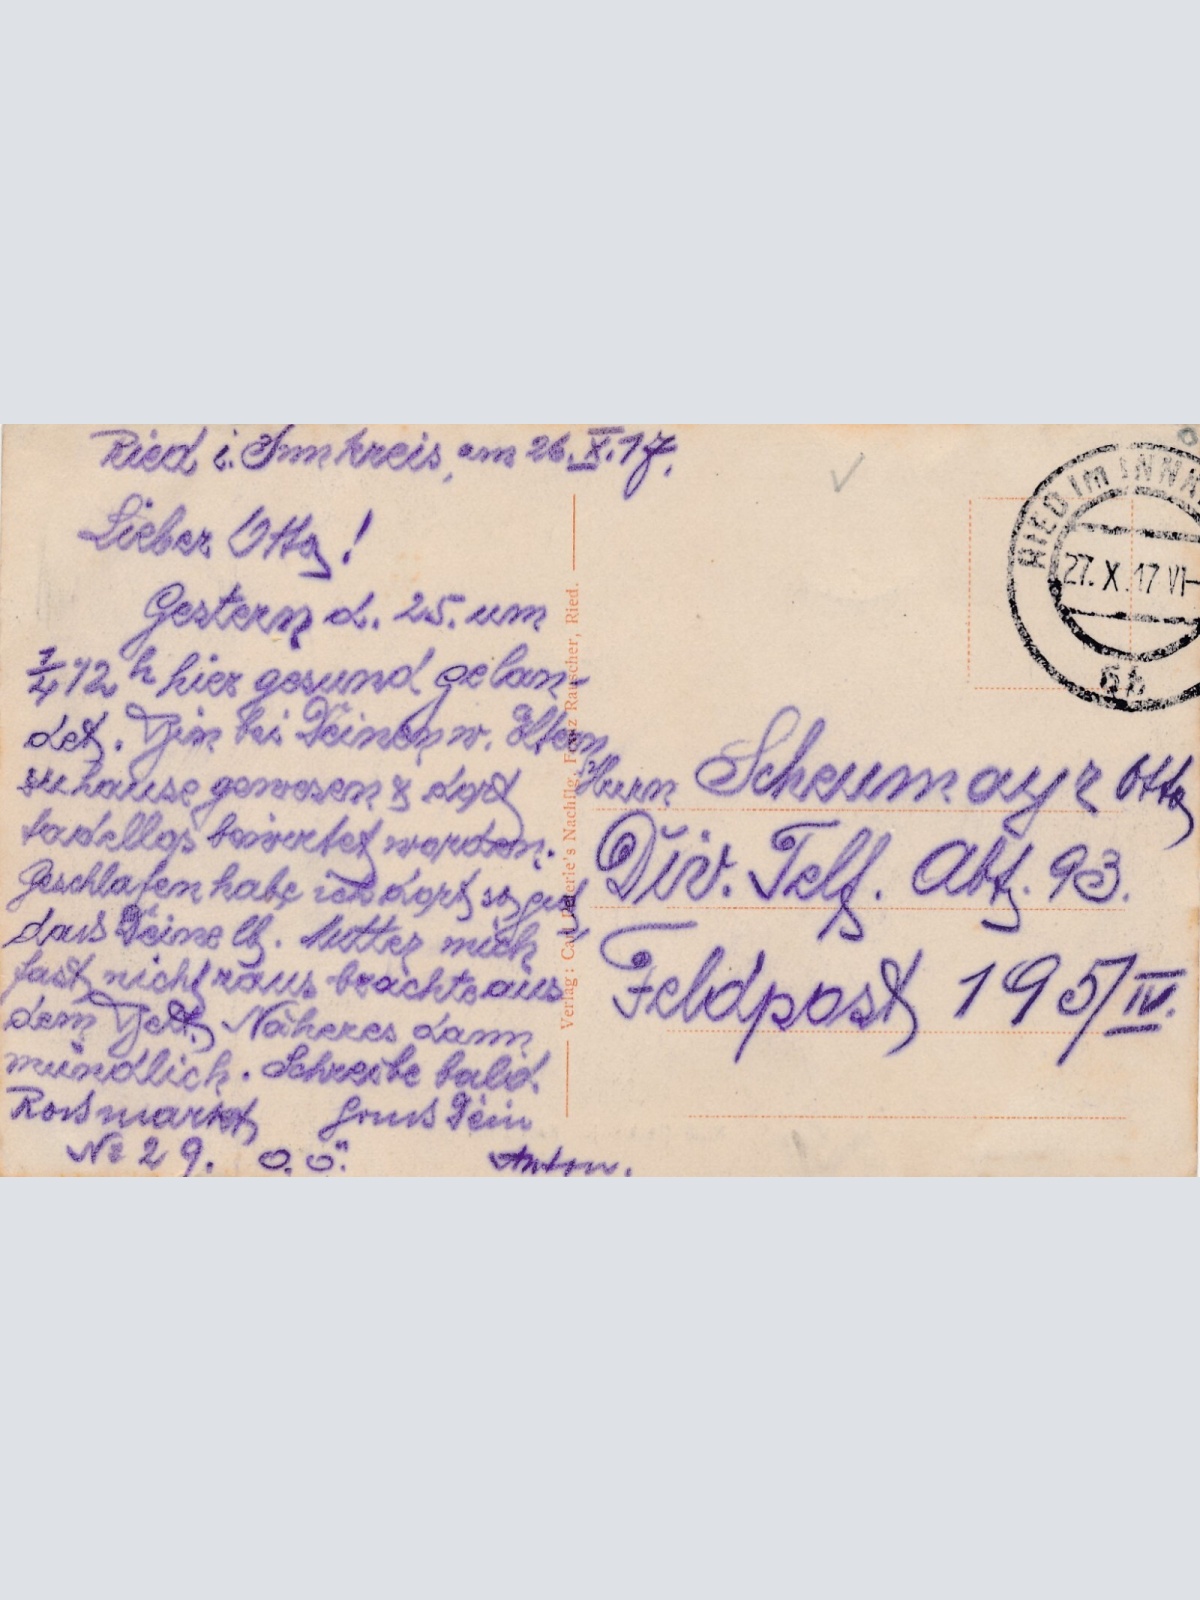 Ried i. Innkreis, am 26.X.17.
Lieber Otto!
Gestern d. 25. um
1/4 12 h hier gesund gelan-
det. Bin bei Deinen w. Eltern
zuhause gewesen & dort
tadellos bewirtet worden.
Geschlafen habe ich dort so gut
dass Deine lb. Mutter mich
fast nicht raus brachte aus
dem Bett. Näheres dann
mündlich. Schreibe bald.
Rossmarkt Gruss Dein
Nr 29. O.Ö. Anton.
Verlag: Nachflg. Franz Rauscher, Ried.
RIED IM INNK
27. X. 17 VI-
6b
Herrn Scheumayr Otto
Div. Telf. Abt. 93.
Feldpost 195/IV.